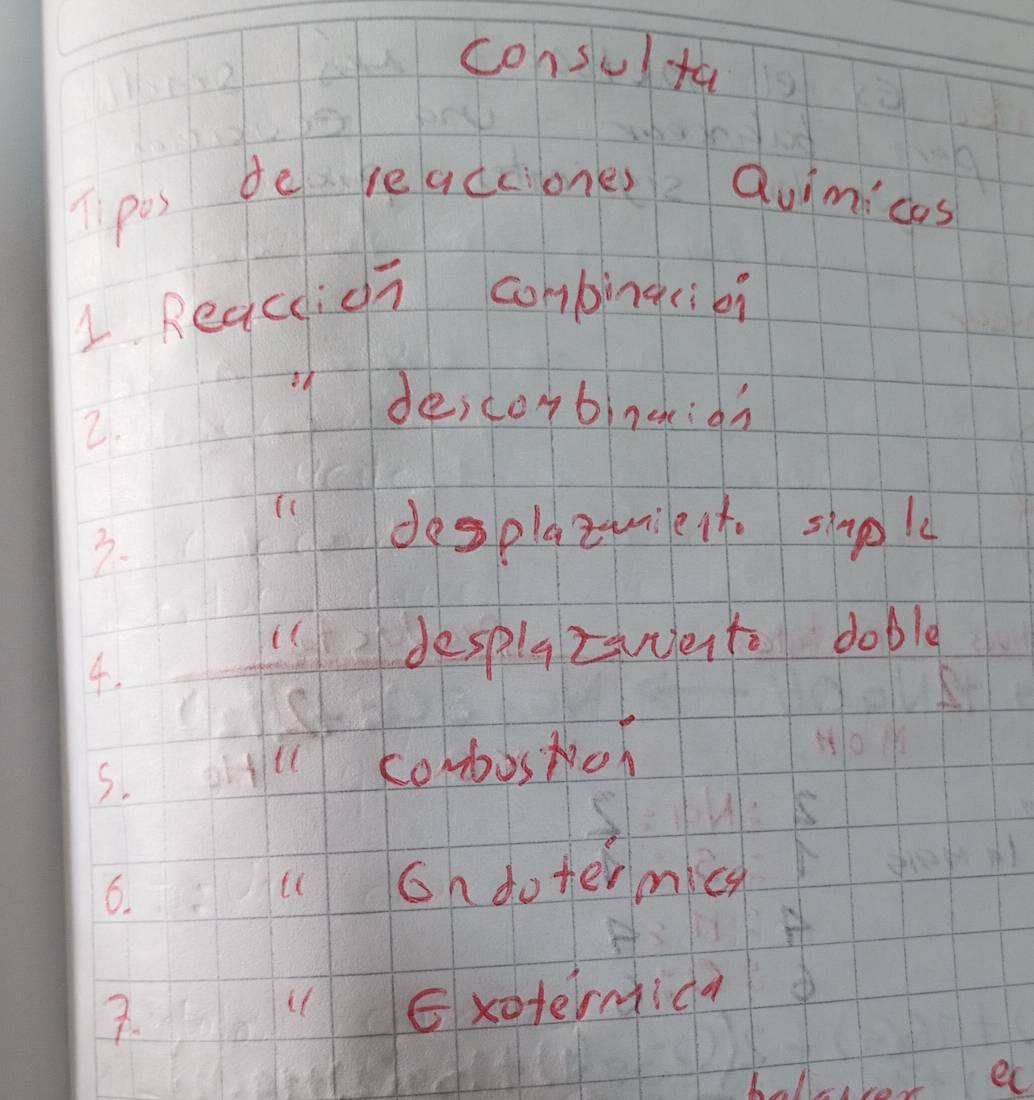 Consulta
Tipos de reacciones Quimicas
1. Reacción combinación
2. " descombinación
3. " desplazamiento simple
4. " desplazamiento doble
5. " combostion
6. " Endotérmica
7. " Exotérmica
balancer ec